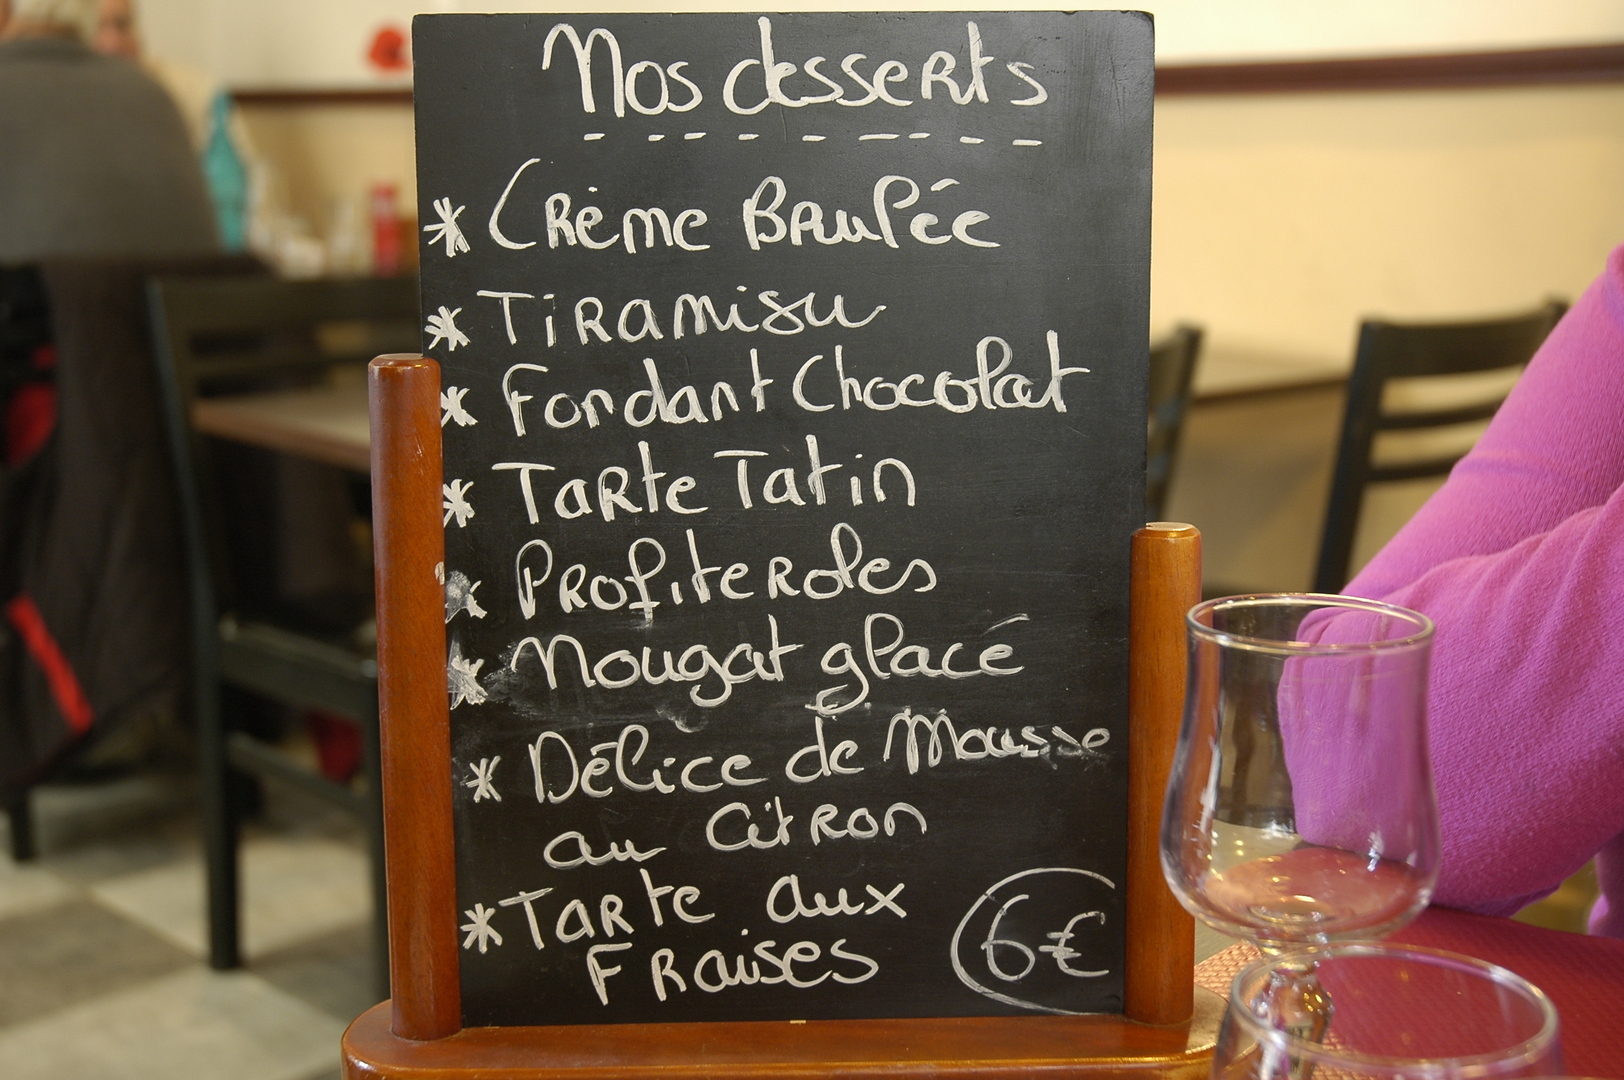 Nos desserts
* Crème Brulée
* Tiramisu
* Fondant Chocolat
* Tarte Tatin
* Profiteroles
* Nougat glacé
* Délice de Mousse
au Citron
* Tarte aux
Fraises
6€